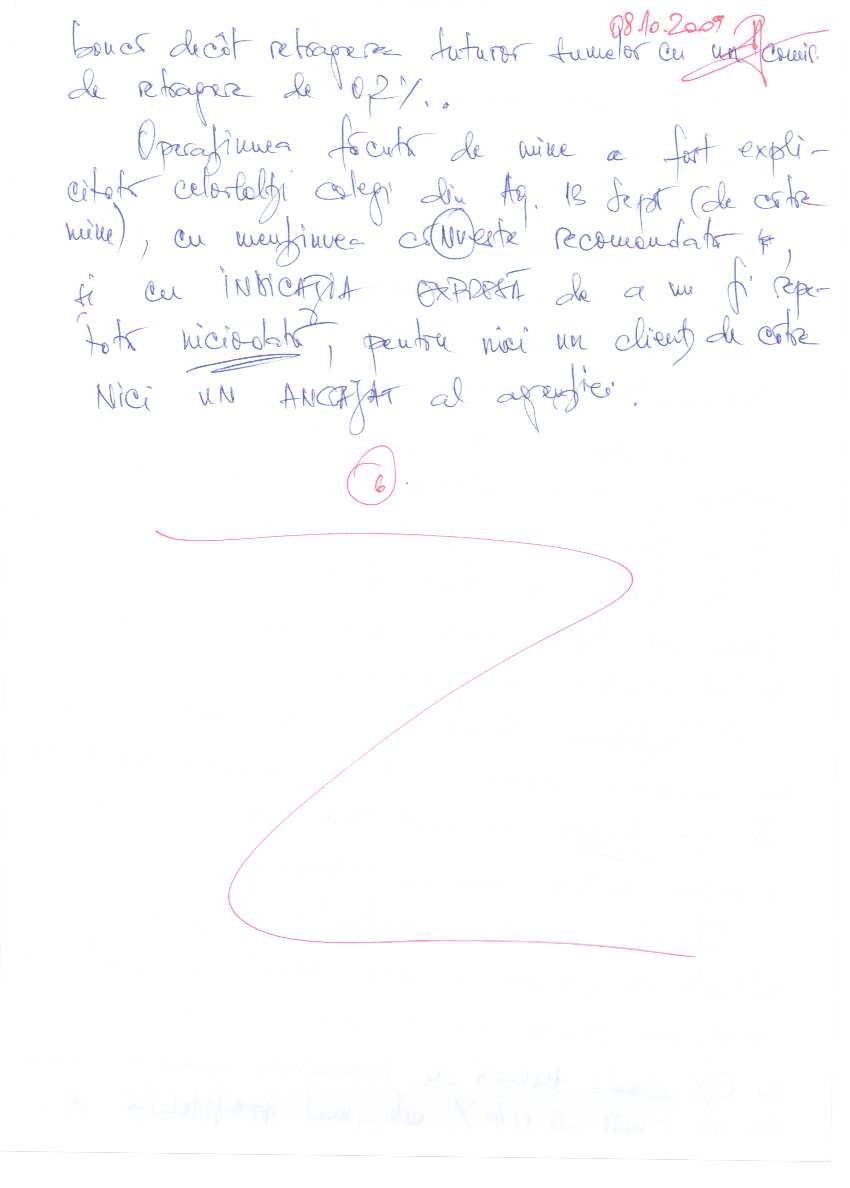 08.10.2009
bancă decât retragerea tuturor sumelor cu un comis.
de retragere de 0,2%..
Operațiunea făcută de mine a fost expli-
citată celorlalți colegi din Ag. 13 Sept (de către
mine), cu mențiunea că NU este recomandată,
și cu INDICAȚIA EXPRESĂ de a nu fi repe-
tată niciodată, pentru nici un client, de către
NICI UN ANGAJAT al agenției.
6